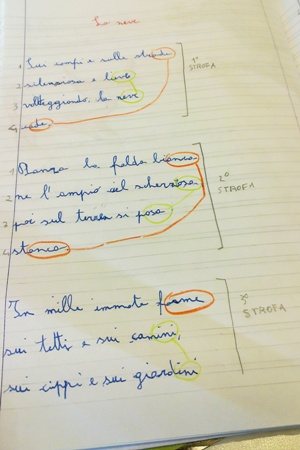 La neve
1 Sui campi e sulle strade
2 silenziosa e lieve
3 volteggiando, la neve
4 cade
1° STROFA
1 Danza la falda bianca
2 ne l'ampio ciel scherzosa
3 poi sul terren si posa
4 stanca.
2° STROFA
In mille immote forme
sui tetti e sui camini,
sui cippi e sui giardini
3° STROFA